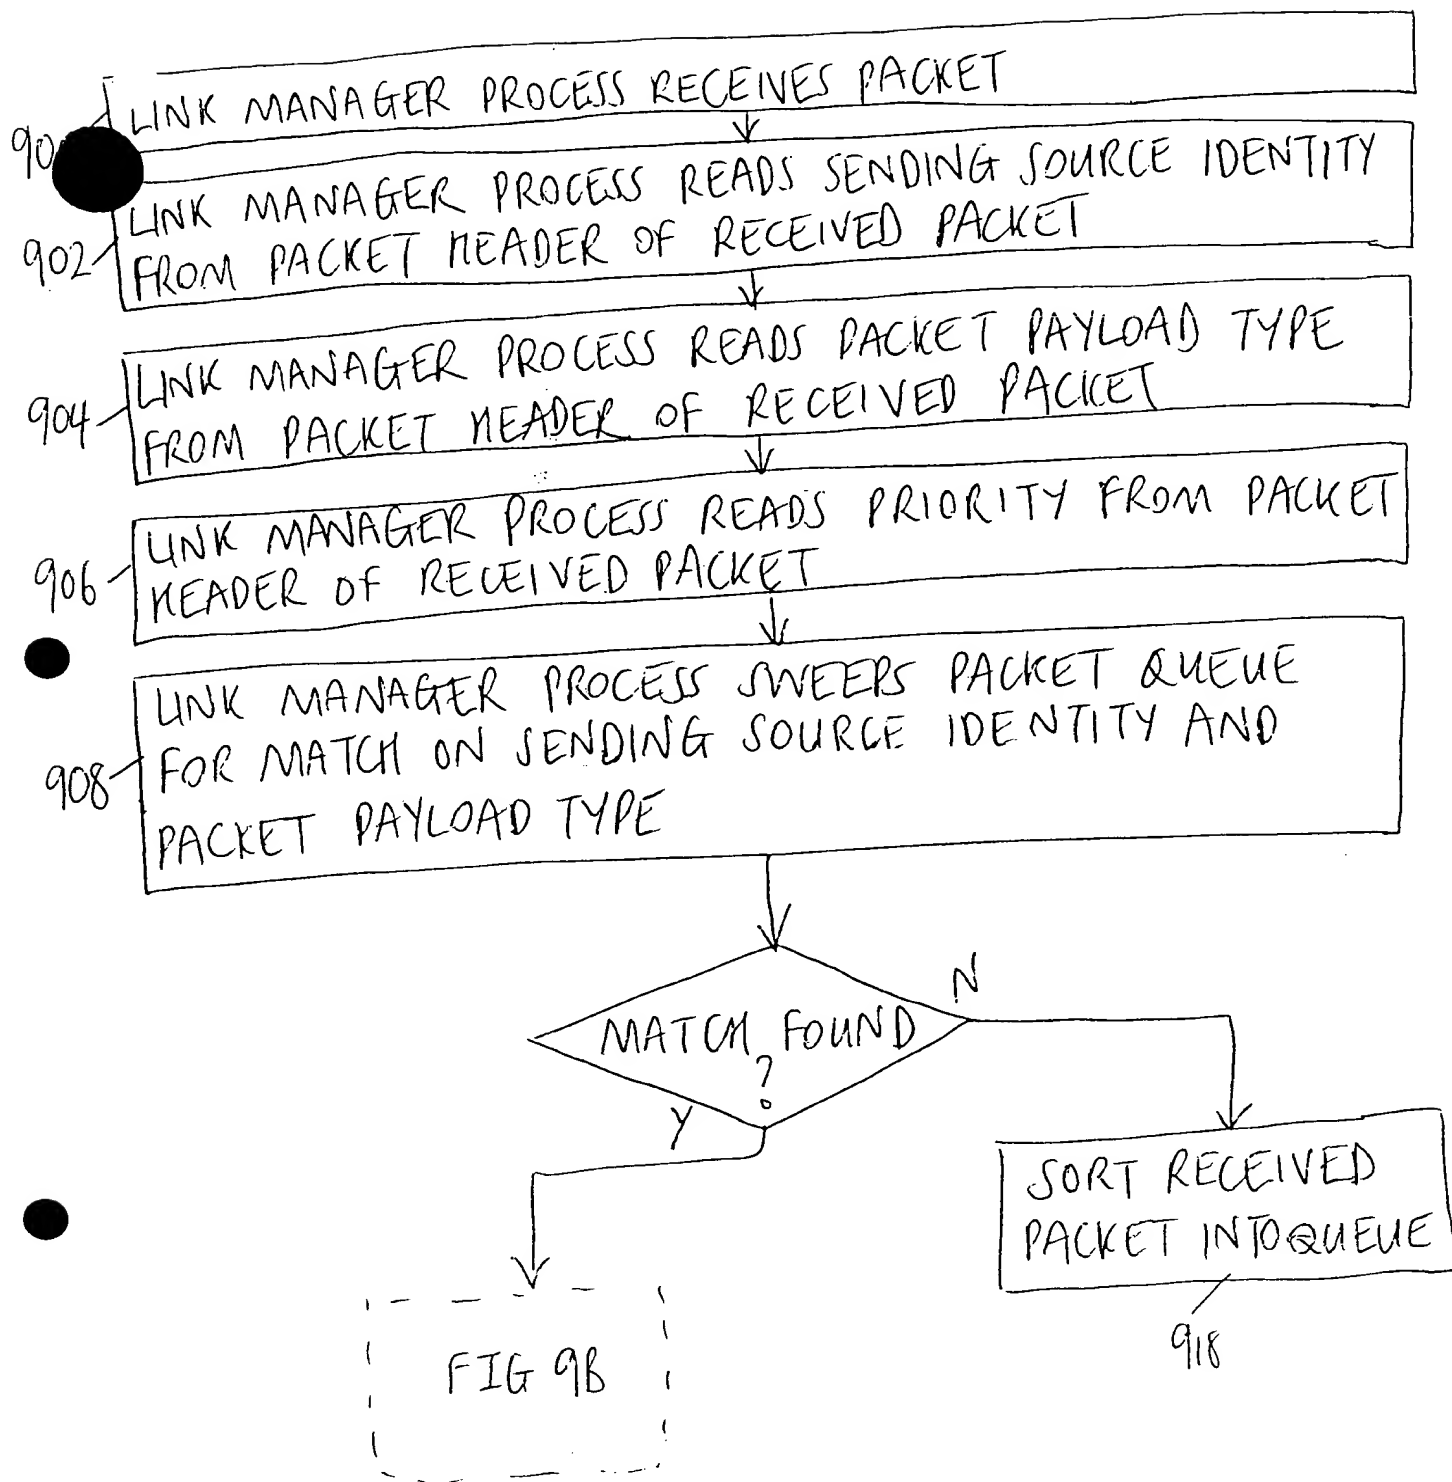 LINK MANAGER PROCESS RECEIVES PACKET
90
LINK MANAGER PROCESS READS SENDING SOURCE IDENTITY
FROM PACKET HEADER OF RECEIVED PACKET
902
LINK MANAGER PROCESS READS PACKET PAYLOAD TYPE
FROM PACKET HEADER OF RECEIVED PACKET
904
LINK MANAGER PROCESS READS PRIORITY FROM PACKET
HEADER OF RECEIVED PACKET
906
LINK MANAGER PROCESS SWEEPS PACKET QUEUE
FOR MATCH ON SENDING SOURCE IDENTITY AND
PACKET PAYLOAD TYPE
908
N
MATCH FOUND
?
Y
SORT RECEIVED
PACKET INTO QUEUE
918
FIG 9B